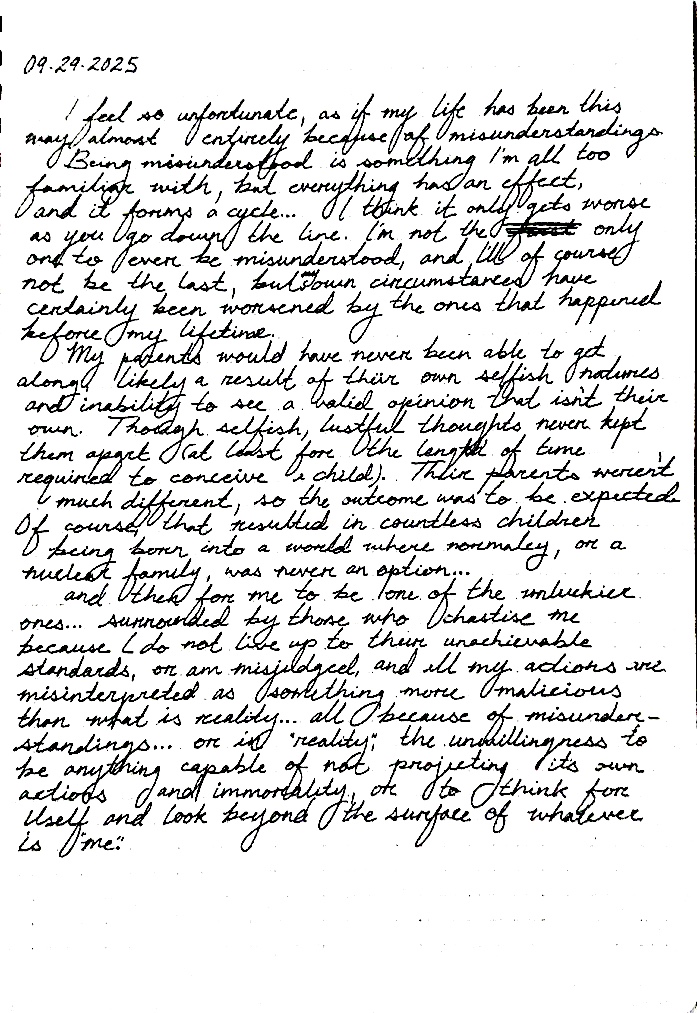 09.29.2025
I feel so unfortunate, as if my life has been this
way almost entirely because of misunderstandings
Being misunderstood is something I'm all too
familiar with, but everything has an effect,
and it forms a cycle... I think it only gets worse
as you go down the line. I'm not the only
one to ever be misunderstood, and I'll of course
not be the last, but own circumstances have
certainly been worsened by the ones that happened
before my lifetime.
My parents would have never been able to get
along, likely a result of their own selfish natures
and inability to see a valid opinion that isn't their
own. Though selfish, lustful thoughts never kept
them apart (at least fore the length of time
required to conceive a child). Their parents weren't
much different, so the outcome was to be expected.
Of course, that resulted in countless children
being born into a world where normalcy, or a
nuclear family, was never an option...
and then for me to be one of the unluckier
ones... surrounded by those who chastise me
because I do not live up to their unachievable
standards, or am misjudged, and all my actions are
misinterpreted as something more malicious
than what is reality... all because of misunder-
standings... or in "reality", the unwillingness to
be anything capable of not projecting its own
actions and immorality, or to think for
itself and look beyond the surface of whatever
is "me".